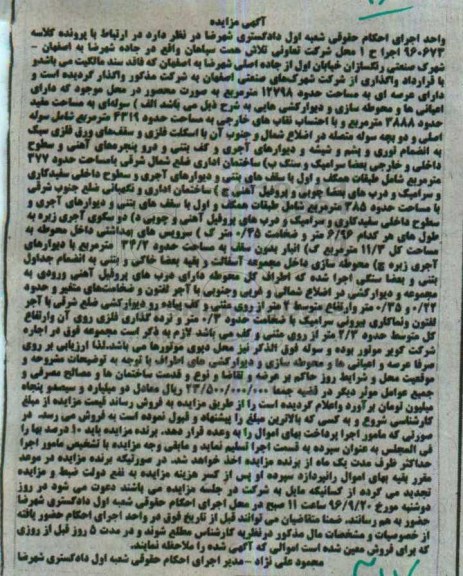 آگهی مزایده
واحد اجرای احکام حقوقی شعبه اول دادگستری شهرضا در نظر دارد در ارتباط با پرونده کلاسه
۹۶۰۶۷۳ اجرا ح ۱ محل شرکت تعاونی تلاش همت سپاهان واقع در جاده شهرضا به اصفهان -
شهرک صنعتی رنگسازان خیابان اول از جاده اصلی شهرضا به اصفهان که فاقد سند مالکیت می باشد و
با قرارداد واگذاری از شرکت شهرکهای صنعتی اصفهان به شرکت مذکور واگذار گردیده است و
دارای عرصه ای به مساحت حدود ۱۲۷۹۸ مترمربع به صورت محصور در محل موجود که دارای
اعیانی ها و محوطه سازی و دیوارکشی هایی به شرح ذیل می باشد الف ) سوله‌ای به مساحت مفید
حدود ۳۸۸۸ مترمربع و با احتساب نقاب های خارجی به مساحت حدود ۴۳۱۹ مترمربع شامل سوله
اصلی و دو پچه سوله متصله در اضلاع شمال و جنوب آن با اسکلت فلزی و سقف‌های ورق فلزی سبک
به انضمام لوری و پشم و شیشه و دیوارهای آجری و کف بتنی و درو پنجره‌های آهنی و سطوح
داخلی و خارجی بعضا سرامیک و سنگ ب) ساختمان اداری ضلع شمال شرقی بامساحت حدود ۳۷۷
مترمربع شامل طبقات همکف و اول با سقف های بتنی و دیوارهای آجری و سطوح داخلی سفیدکاری
و سرامیک و درب های بعضا چوبی و پروفیل آهنی ج) ساختمان اداری و نگهبانی ضلع جنوب شرقی
با مساحت حدود ۳۸۵ مترمربع شامل طبقات همکف و اول با سقف های بتنی و دیوارهای آجری و
سطوح داخلی سفیدکاری و سرامیک و درب های پروفیل آهنی و چوبی د) دو سکوی آجری زیره به
طول های هر کدام ۶/۹۶ متر و ضخامت ۰/۴۵ متر ک ) سرویس های بهداشتی داخل محوطه به
مساحت کل ۱۱/۳ مترمربع ک) انبار بدون سقف به مساحت حدود ۳۴/۲ مترمربع با دیوارهای
آجری زبره ج) محوطه سازی داخل مجموعه آسفالت و بقیه بعضا خاکی و بتنی به انضمام جداول
بتنی و بعضا سنگی اجرا شده که اطراف کل محوطه دارای درب های پروفیل آهنی ورودی به
مجموعه و دیوارکشی در اضلاع شمالی و غربی وجنوبی با آجر لفتون و ضخامت‌های متغیر و حدود
۰/۲۲ و ۰/۳۵ متر وارتفاع متوسط ۲ متر از روی بتنی و کف پیاده رو دیوارکشی ضلع شرقی با آجر
لفتون ونماکاری بیرونی سرامیک با ضخامت حدود ۰/۳ متر و نرده گذاری فلزی روی آن وارتفاع
کل متوسط حدود ۲/۳ متر از روی بتنی و کف می باشد لازم به ذکر است مجموعه فوق در اجاره
شرکت کویر موتور بوده و سوله فوق الذکر نیز محل دپوی موتورها می باشد.لذا ارزیابی بر روی
صرفا عرصه و اعیانی ها و محوطه سازی و دیوارکشی های اطراف با توجه به توضیحات مشروحه و
موقعیت محل و شرایط روز حاکم بر عرضه و تقاضا و نوع و قدمت ساختمان ها و مصالح مصرفی و
جمیع عوامل موثر دیگر در قضیه جمعا ریال معادل دو میلیارد و سیصدو پنجاه
میلیون تومان برآورد واعلام گردیده است را از طریق مزایده به فروش رساند قیمت مزایده از مبلغ
کارشناسی شروع و به کسی که بالاترین مبلغ را پیشنهاد و قبول نموده است به فروش می رسد در
صورتی که مامور اجرا پرداخت بهای اموال را به وعده قرار دهد. برنده مزایده باید ۱۰ درصد بها را
فی المجلس به عنوان سپرده به قسمت اجرا تسلیم نماید و مابقی وجه مزایده با تشخیص مامور اجرا
حداکثر ظرف مدت یک ماه از برنده مزایده اخذ خواهد شد. در صورتیکه برنده مزایده در موعد
مقرر بقیه بهای اموال رانپردازد سپرده او پس از کسر هزینه مزایده به نفع دولت ضبط و مزایده
تجدید می گردد از کسانیکه مایل به شرکت در جلسه مزایده می باشند دعوت می شود در روز
دوشنبه مورخ ۹۶/۹/۲۰ ساعت ۱۱ صبح در محل اجرای احکام حقوقی شعبه اول دادگستری شهرضا
حضور به هم رسانند. ضمنا متقاضیان می توانند قبل از تاریخ فوق در واحد اجرای احکام حضور یافته
از خصوصیات و مشخصات مال مذکور درنظریه کارشناس مطلع شوند و در مدت ۵ روز قبل از روزی
که برای فروش معین شده است اموالی که آگهی شده را ملاحظه نمایند.
محمود علی نژاد -مدیر اجرای احکام حقوقی شعبه اول دادگستری شهرضا